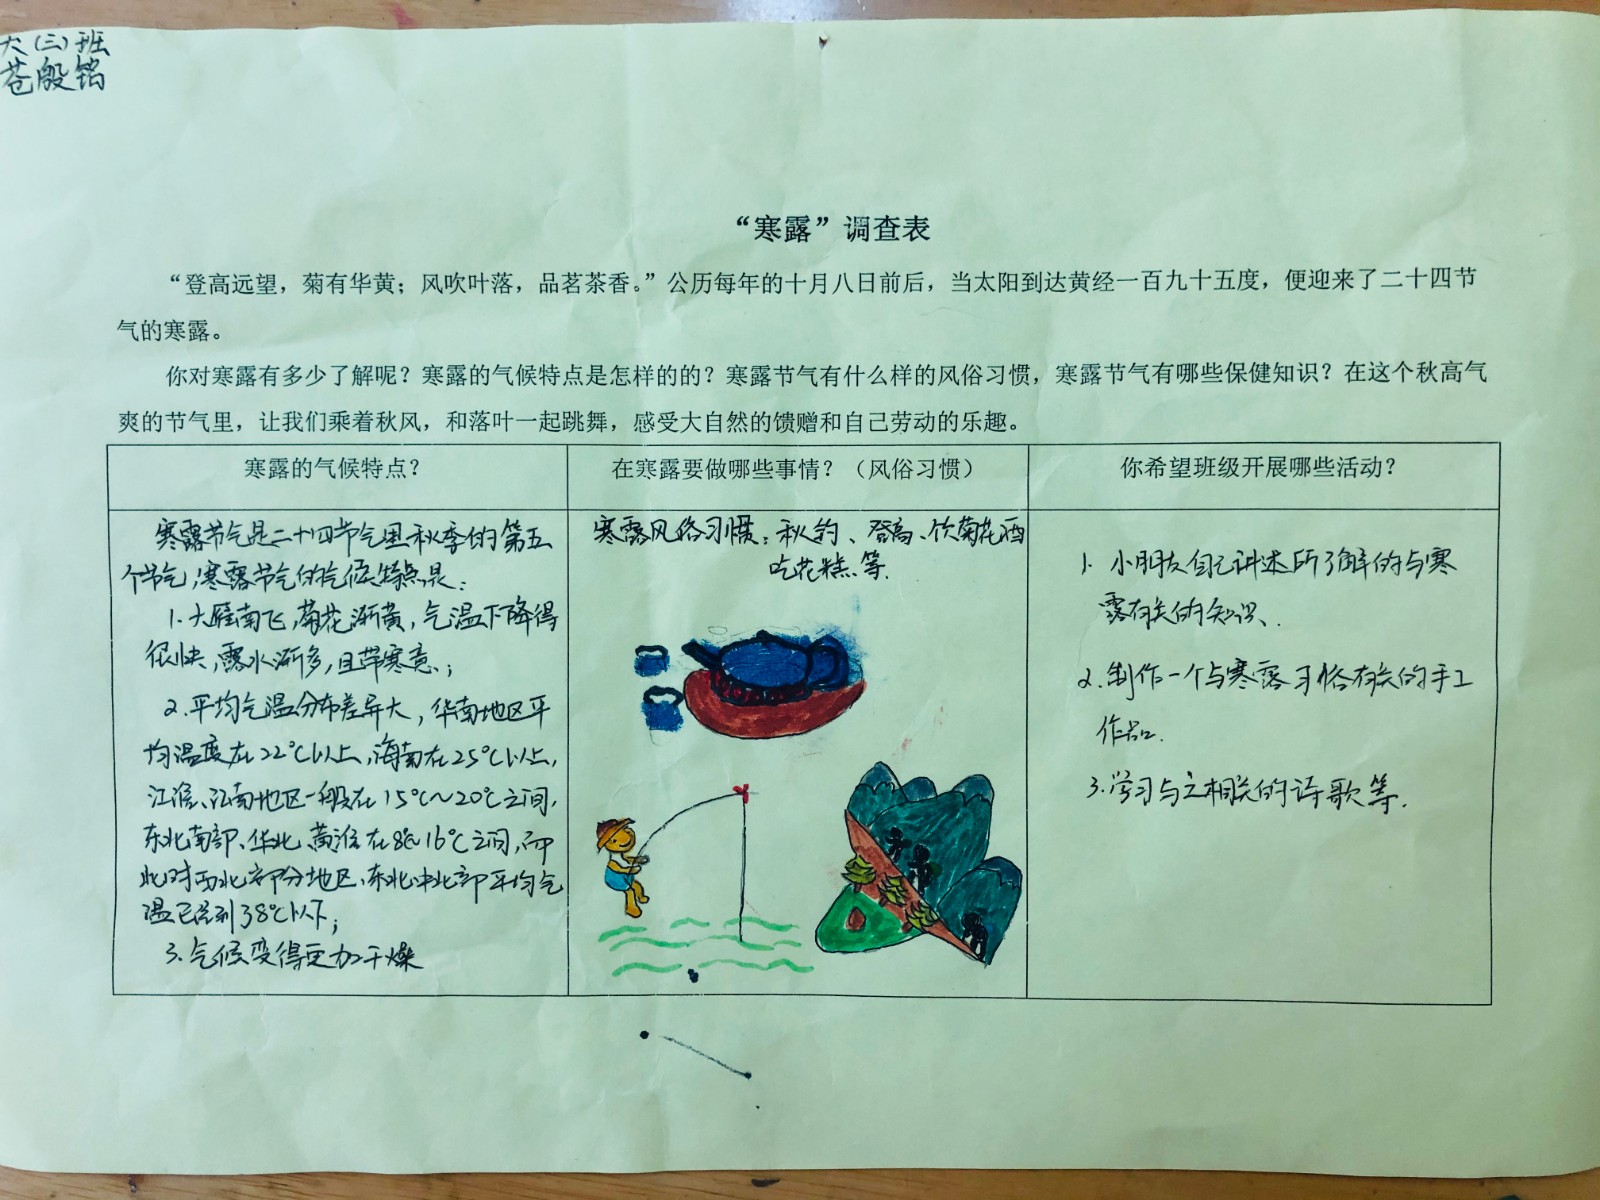 大(三)班
苍殷铭
“寒露”调查表
“登高远望，菊有华黄；风吹叶落，品茗茶香。”公历每年的十月八日前后，当太阳到达黄经一百九十五度，便迎来了二十四节
气的寒露。
你对寒露有多少了解呢？寒露的气候特点是怎样的的？寒露节气有什么样的风俗习惯，寒露节气有哪些保健知识？在这个秋高气
爽的节气里，让我们乘着秋风，和落叶一起跳舞，感受大自然的馈赠和自己劳动的乐趣。
寒露的气候特点？
寒露节气是二十四节气里秋季的第五
个节气，寒露节气的气候特点是：
1.大雁南飞，菊花渐黄，气温下降得
很快，露水渐多，且带寒意；
2.平均气温分布差异大，华南地区平
均温度在22℃以上，海南在25℃以上，
江淮、江南地区一般在15℃~20℃之间，
东北南部、华北、黄淮在8℃~16℃之间，而
此时西北部分地区、东北中北部平均气
温已到38℃以下；
3.气候变得更加干燥
在寒露要做哪些事情？（风俗习惯）
寒露风俗习惯：秋钓、登高、饮菊花酒
吃花糕等.
你希望班级开展哪些活动？
1. 小朋友自己讲述所了解的与寒
露有关的知识、.
2.制作一个与寒露习俗有关的手工
作品.
3.学习与之相关的诗歌等.